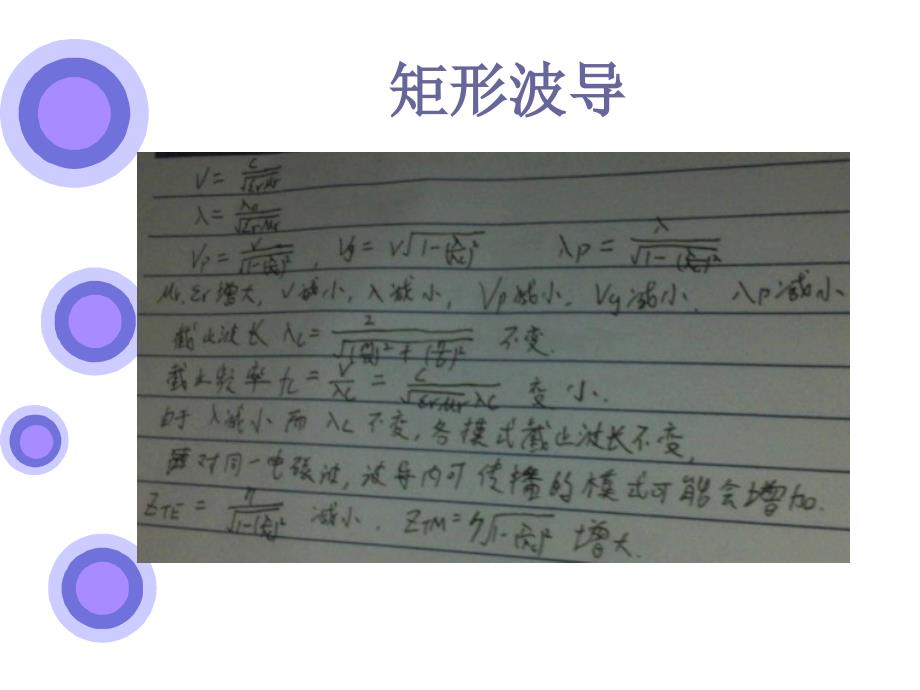 矩形波导
V = c/√(εrμr)
λ = λ0/√(εrμr)
Vp = V/√(1-(λ/λc)²) , Vg = V√(1-(λ/λc)²) λp = λ/√(1-(λ/λc)²)
μr, εr 增大, V 减小, λ 减小, Vp 减小, Vg 减小. λp 减小
截止波长 λc = 2/√((m/a)²+(n/b)²) 不变.
截止频率 fc = V/λc = c/(√(εrμr) λc) 变小.
由于 λ减小而 λc 不变, 各模式截止波长不变,
对同一电磁波, 波导内可传播的模式可能会增加.
ZTE = η/√(1-(λ/λc)²) 减小. ZTM = η√(1-(λ/λc)²) 增大.